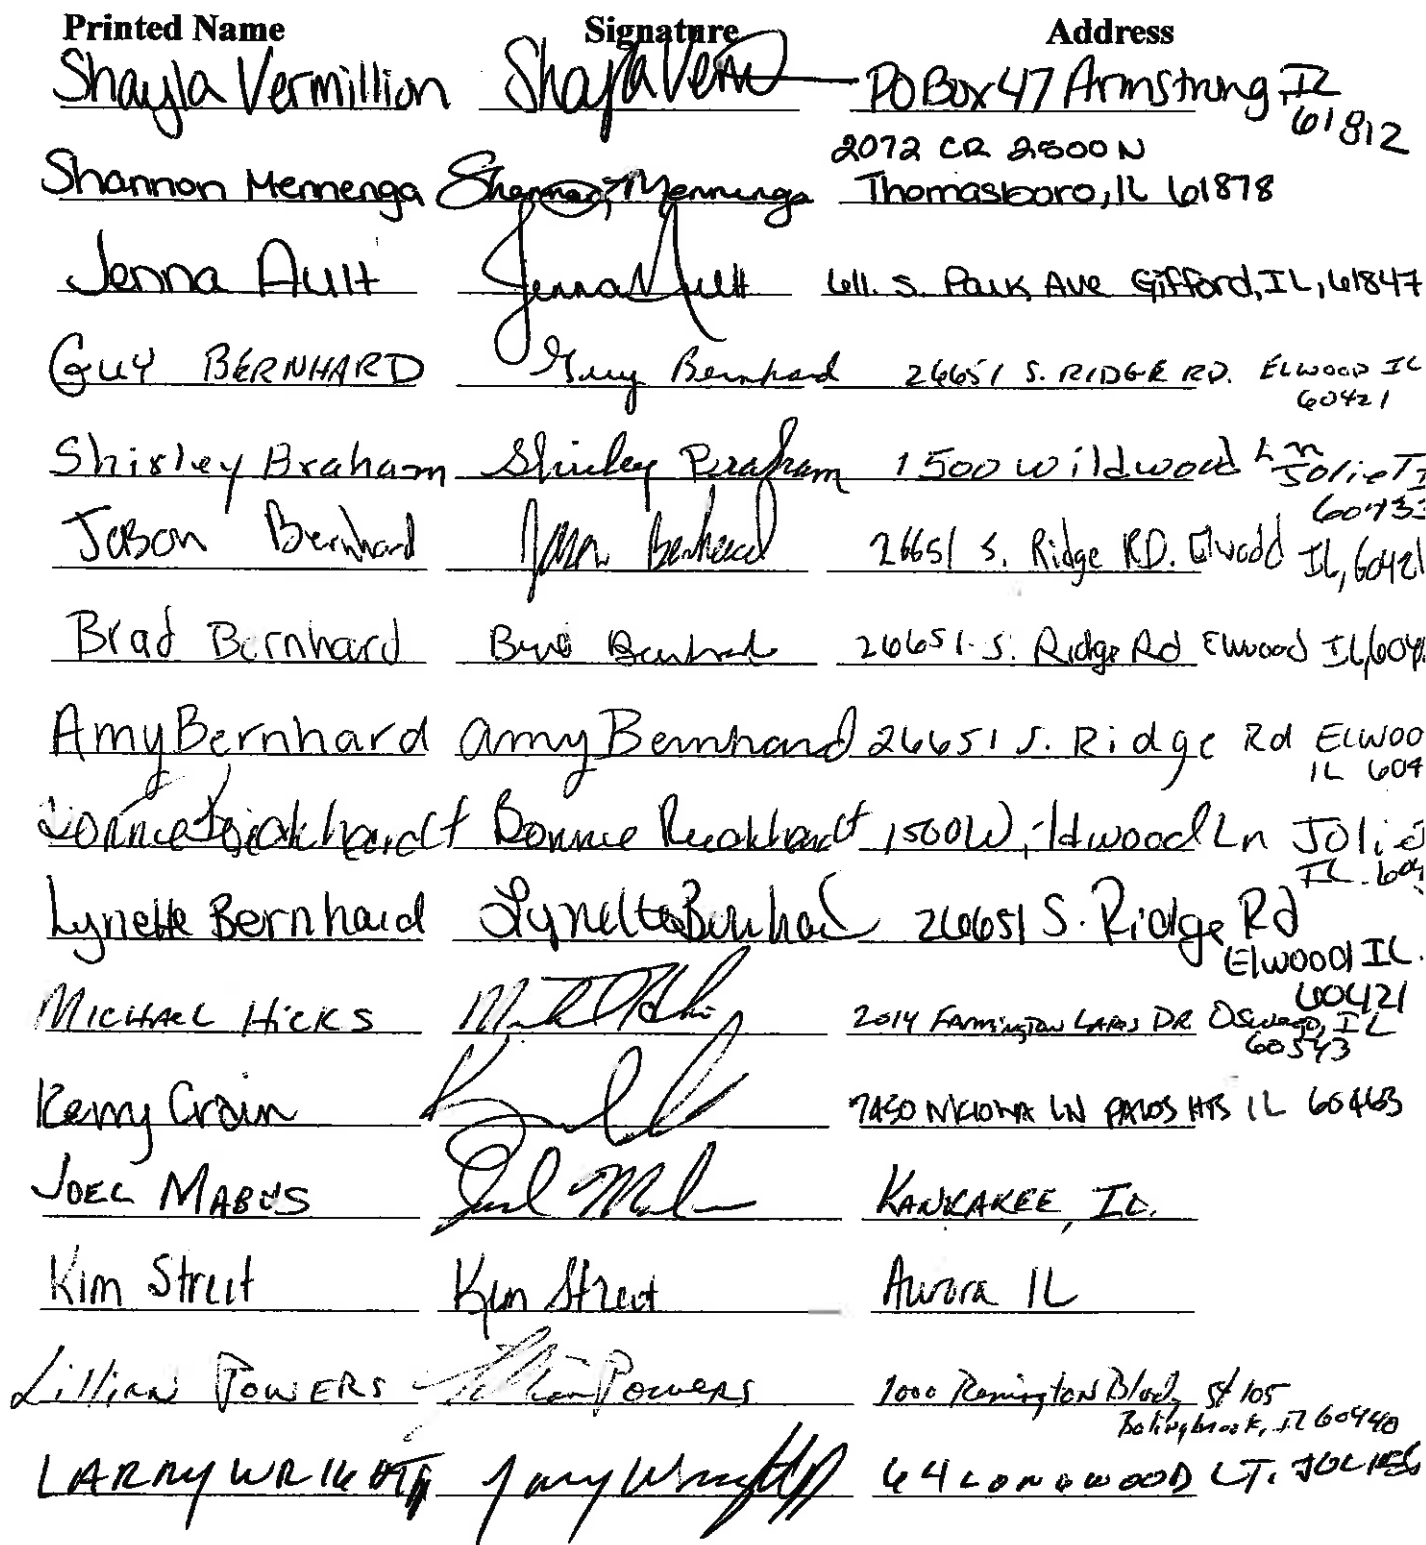 Printed Name Signature Address
Shayla Vermillion Shayla Verm PO Box 47 Armstrong, IL
61812
2072 CR 2500 N
Shannon Mennenga Shannon Mennenga Thomasboro, IL 61878
Jenna Ault Jenna Ault 611. S. Park Ave Gifford, IL, 61847
GUY BERNHARD Guy Bernhard 26651 S. RIDGE RD. ELWOOD IL
60421
Shirley Braham Shirley Braham 1500 Wildwood Ln
Joliet I
60433
Jason Bernhard Jason Bernhard 26651 S. Ridge RD. Elwood IL, 60421
Brad Bernhard Brad Bernhard 26651. S. Ridge Rd Elwood IL, 604
Amy Bernhard Amy Bernhard 26651 S. Ridge Rd ELWOO
IL 604
Bonnie Bonnie 1500 Wildwood Ln Jolie
IL. 604
Lynette Bernhard Lynette Bernhard 26651 S. Ridge Rd
Elwood IL.
60421
MICHAEL HICKS 2014 FARMINGTON LAKES DR Oswego, IL
60543
Kerry Crain LN PALOS HTS IL 60463
JOEL MABUS Joel Mabus KANKAKEE, IL.
Kim Street Kim Street Aurora IL
Lillian POWERS Lillian Powers 1000 Remington Blvd, St 105
Bolingbrook, IL 60440
LARRY WRIGHT Larry Wright 64 LONGWOOD CT.